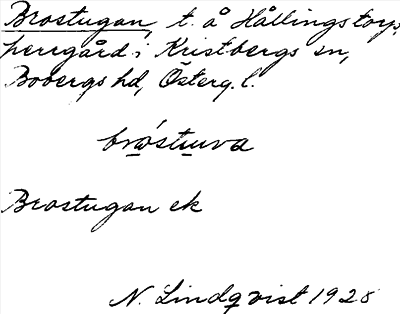 Brostugan, t. å Hållingstorps
herrgård i Kristbergs sn,
Bobergs hd, Österg. l.
brǿstuva
Brostugan ek
N. Lindqvist 1925